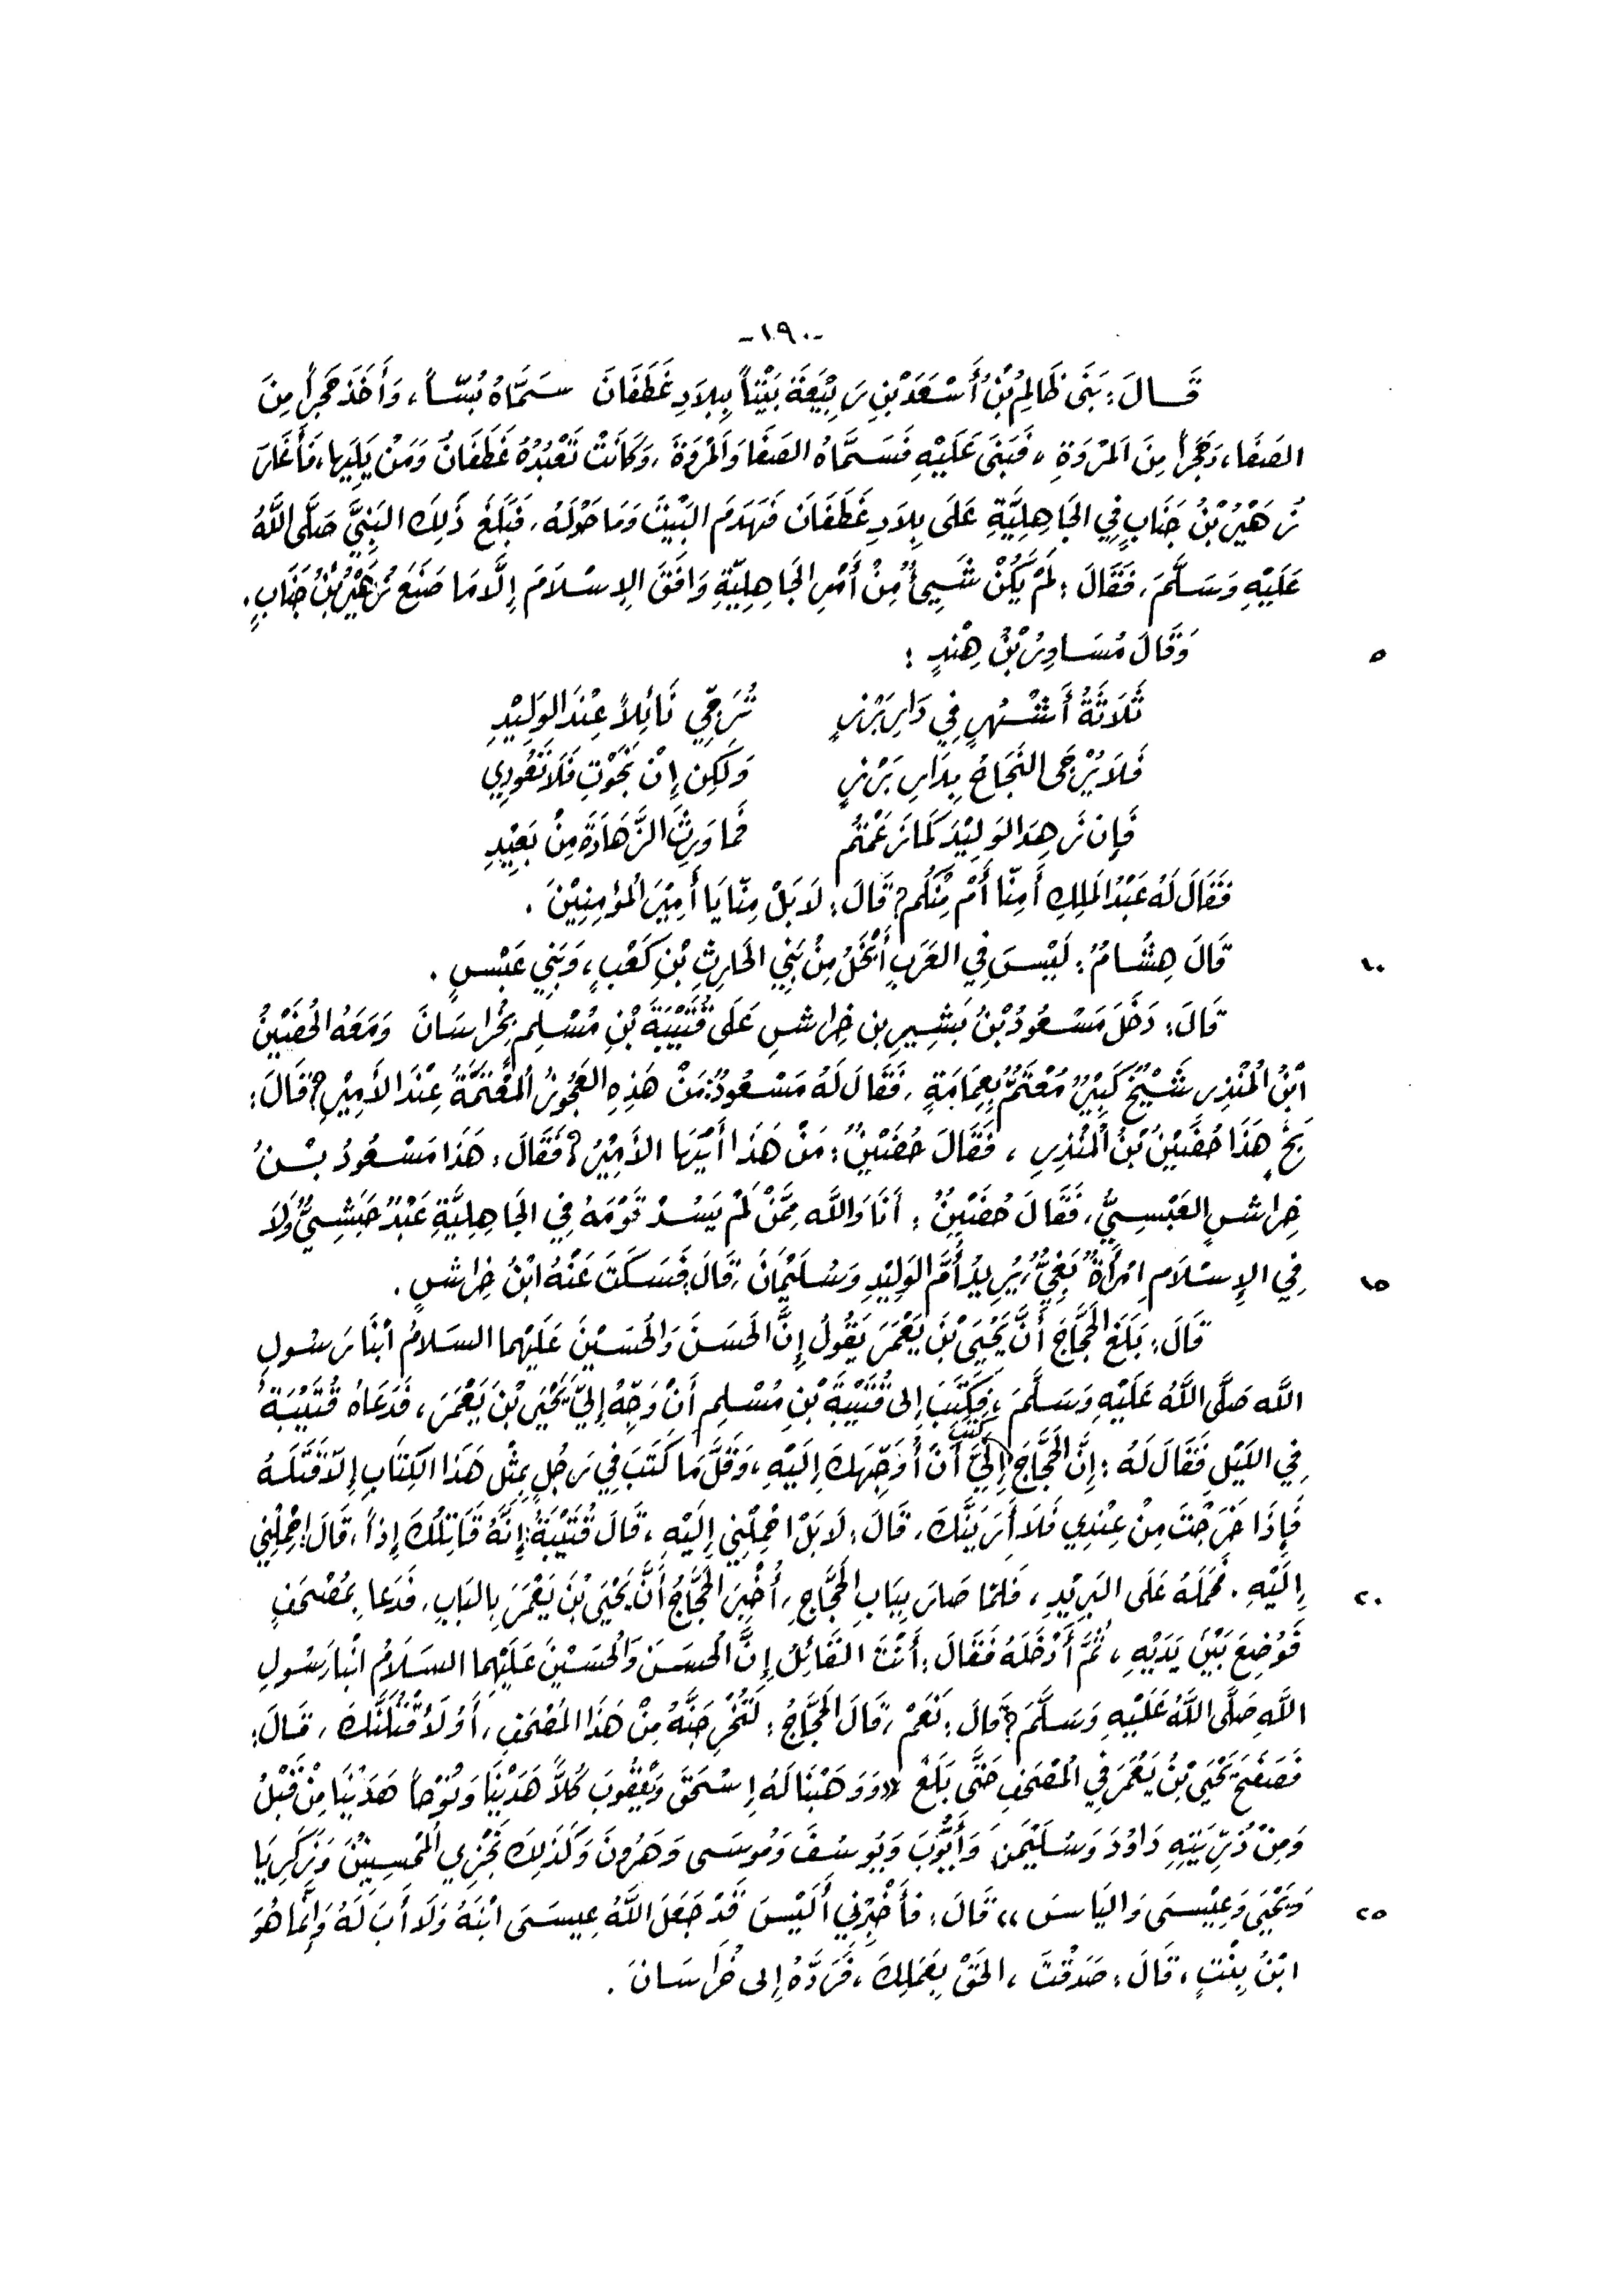 -١٩٠-
قَــالَ: بَنَى ظَالِمُ بْنُ أَسْعَدَ بْنِ رَبِيْعَةَ بَيْتاً بِبِلَادِ غَطَفَانَ سَمَّاهُ بُسّاً، وَأَخَذَ حَجَراً مِنَ
الصَفَا، وَحَجَراً مِنَ المَرْوَةِ، فَبَنَى عَلَيْهِ فَسَمَّاهُ الصَفَا وَالمَرْوَةَ، وَكَانَتْ تَعْبُدُهُ غَطَفَانُ وَمَنْ يَلِيَها، فَأَغَارَ
زُهَيْرُ بْنُ جَنَابٍ فِي الجَاهِلِيَّةِ عَلَى بِلَادِ غَطَفَانَ فَهَدَمَ البَيْتَ وَمَا حَوْلَهُ، فَبَلَغَ ذَلِكَ النَبِيَّ صَلَّى اللَّهُ
عَلَيْهِ وَسَلَّمَ، فَقَالَ: لَمْ يَكُنْ شَيِئٌ مِنْ أَمْرِ الجَاهِلِيَّةِ وَافَقَ الإِسْلَامَ إِلَّا مَا صَنَعَ زُهَيْرُ بْنُ جَنَابٍ.
وَقَالَ مُسَاوِرُ بْنُ هِنْدٍ: ٥
ثَلَاثَةُ أَشْهُرٍ فِي دَارِ بَرْزٍ تُرَجِّي نَائِلاً عِنْدَ الوَلِيْدِ
فَلَا يُرْجَى النَجَاحُ بِدَارِ بَرْزٍ وَلَكِن إِنْ نَجَوْتِ فَلَا تَعُودِي
فَإِن زَهِدَ الوَلِيْدَ كَمَا زَعَمْتُم فَمَا وَرِثَ الزَّهَادَةَ مِنْ بَعِيْدِ
فَقَالَ لَهُ عَبْدُ المَلِكِ أَمِنّا أَمْ مِنْكُم؟ قَالَ: لَا بَلْ مِنّا يَا أَمِيْرَ المُؤمِنِيْنَ.
قَالَ هِشَامُ: لَيْسَ فِي العَرَبِ أَبْخَلُ مِنْ بَنِي الحَارِثِ بْنِ كَعْبٍ، وَبَنِي عَبْسٍ. ١٠
قَالَ: دَخَلَ مَسْعُودُ بْنُ بَشِيرِ بن خِرَاشٍ عَلَى قُتَيْبَةَ بْنِ مُسْلِمٍ بِخُرَاسَانَ وَمَعَهُ الحُضَيْنُ
ابْنُ المُنْذِرِ شَيْخٌ كَبِيْرٌ مُعْتَمٌّ بِعِمَامَةٍ، فَقَالَ لَهُ مَسْعُودُ: مَنْ هَذِهِ العَجُوزُ المُعْتَمَّةُ عِنْدَ الأَمِيْرِ؟ قَالَ:
بَخٍ هَذَا حُضَيْنُ بْنُ المُنْذِرِ، فَقَالَ حُضَيْنٌ: مَنْ هَذَا أَيُّهَا الأَمِيْرُ؟ فَقَالَ: هَذَا مَسْعُودُ بْــنُ
خِرَاشٍ العَبْسِيُّ، فَقَالَ حُضَيْنٌ: أَنَا وَاللَّه مِمَّنْ لَمْ يَسُدْ قَوْمَهُ فِي الجَاهِلِيَّةِ عَبْدٌ حَبَشِيٌّ وَلَا
فِي الإِسْلَامِ امْرَأَةٌ بَغِيٌّ، يُرِيدُ أُمَّ الوَلِيْدِ وَسُلَيْمَانَ، قَالَ: فَسَكَتَ عَنْهُ ابْنُ خِرَاشٍ. ١٥
قَالَ: بَلَغَ الحَجَّاجَ أَنَّ يَحْيَى بْنَ يَعْمَرَ يَقُولُ إِنَّ الحَسَنَ وَالحُسَيْنَ عَلَيْهِما السَلَامُ ابْنَا رَسُولِ
اللَّه صَلَّى اللَّهُ عَلَيْهِ وَسَلَّمَ، فَكَتَبَ إِلى قُتَيْبَةَ بْنِ مُسْلِمٍ أَنْ وَجِّهْ إِليَّ يَحْيَى بْنَ يَعْمَرَ، فَدَعَاهُ قُتَيْبَةُ
كَتَبَ
فِي اللَيْلِ فَقَالَ لَهُ: إِنَّ الحَجَّاجَ إِلَيَّ أَنْ أُوَجِّهَكَ إِلَيْهِ، وَقَلَّ مَا كَتَبَ فِي رَجُلٍ بِمِثْلِ هَذَا الكِتَابِ إِلَّا قَتَلَهُ
فَإِذَا خَرَجْتَ مِنْ عِنْدِي فَلَا أَرَيَنَّكَ، قَالَ: لَا بَلْ احْمِلْنِي إِلَيْهِ، قَالَ قُتَيْبَةُ: إِنَّهُ قَاتِلُكَ إِذاً، قَالَ: احْمِلْنِي
إِلَيْهِ. فَحَمَلَهُ عَلَى البَرِيْدِ، فَلمّا صَارَ بِبَابِ الحَجَّاجِ، أُخْبِرَ الحَجَّاجُ أَنَّ يَحْيَى بْنَ يَعْمَرَ بِالبَابِ، فَدَعا بِمُصْحَفٍ ٢٠
فَوُضِعَ بَيْنَ يَدَيْهِ، ثُمَّ أَدْخَلَهُ فَقَالَ: أَنْتَ القَائِلُ إِنَّ الحَسَنَ وَالحُسَيْنَ عَلَيْهِما السَلَامُ ابْنَا رَسُولِ
اللَّهِ صَلَّى اللَّهُ عَلَيْهِ وَسَلَّمَ؟ قَالَ: نَعَمْ، قَالَ الحَجَّاجُ: لَتُخْرِجَنَّهُ مِنْ هَذَا المُصْحَفِ، أَوْ لَأَقْتُلَنَّكَ، قَالَ:
فَصَفَحَ يَحْيَى بْنُ يَعْمَرَ فِي المُصْحَفِ حَتَّى بَلَغَ «وَوَهَبْنَا لَهُ إِسْحَقَ وَيَعْقُوبَ كُلاًّ هَدَيْنَا وَنُوْحاً هَدَيْنَا مِنْ قَبْلُ
وَمِنْ ذُرِّيَتِهِ دَاوُدَ وَسُلَيْمَنَ وَأَيُّوبَ وَيُوسُفَ وَمُوسَى وَهَرُونَ وَكَذَلِكَ نَجْزِي المُحْسِنِيْنَ وَزَكَرِيَا
وَيَحْيَى وَعِيْسَى وَاليَاسَ» قَالَ: فَأَخْبِرْنِي أَلَيْسَ قَدْ جَعَلَ اللَّهُ عِيسَى ابْنَهُ وَلَا أَبَ لَهُ وَإِنَّمَا هُوَ ٢٥
ابْنُ بِنْتٍ، قَالَ: صَدَقْتَ، الحَقْ بِعَمَلِكَ، فَرَدَّهُ إِلى خُرَاسَانَ.